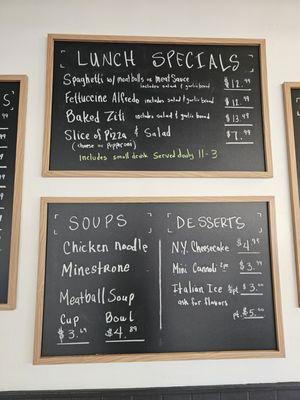 LUNCH SPECIALS
Spaghetti w/ meatballs or meat Sauce $12.99
includes salad & garlic bread
Fettuccine Alfredo includes salad & garlic bread $12.99
Baked Ziti includes salad & garlic bread $13.49
Slice of Pizza & Salad $7.99
(cheese or pepperoni)
Includes small drink Served daily 11-3
SOUPS
Chicken Noodle
Minestrone
Meatball Soup
Cup Bowl
$3.69 $4.89
DESSERTS
N.Y. Cheesecake $4.95
Mini Cannoli $3.99
Italian Ice ½pt. $3.00
ask for flavors
pt. $5.00